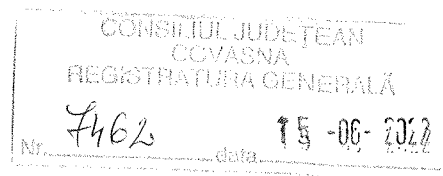 CONSILIUL JUDEȚEAN
COVASNA
REGISTRATURA GENERALĂ
Nr. 7462 data 15 -06- 2022